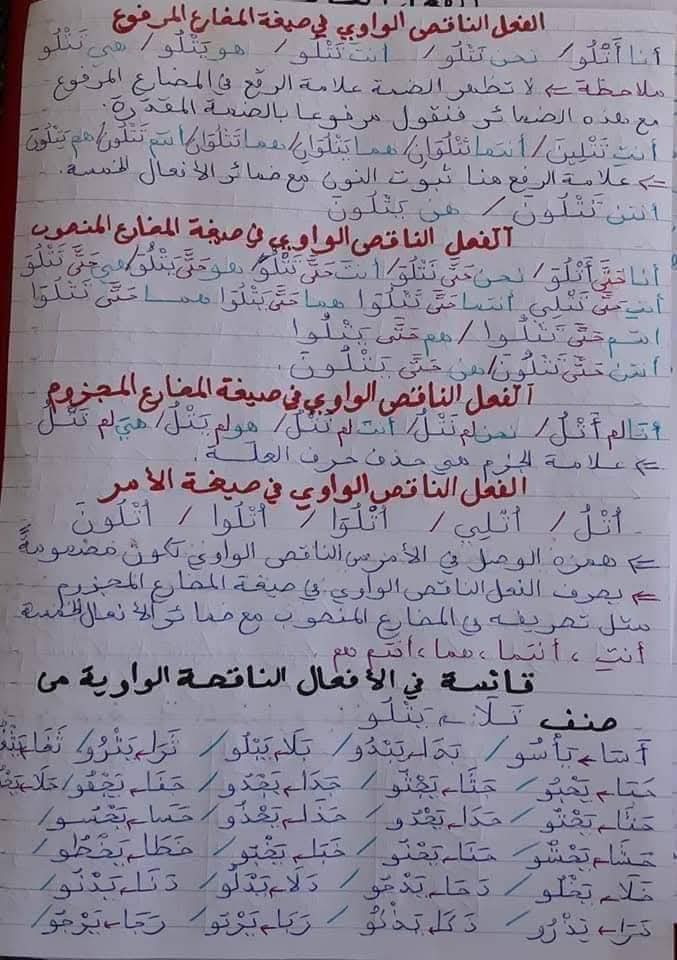 الفعل الناقص الواوي في صيغة المضارع المرفوع
أنا أَتْلُو / نحن نَتْلُو / أنتَ تَتْلُو / هو يَتْلُو / هي تَتْلُو
ملاحظة ⇐ لا تظهر الضمة علامة الرفع في المضارع المرفوع
مع هذه الضمائر فنقول مرفوعا بالضمة المقدّرة.
أنتِ تَتْلِينَ / أنتما تَتْلُوَانِ / هما يَتْلُوَانِ / هما تَتْلُوَانِ / أنتم تَتْلُونَ / هم يَتْلُونَ
⇐ علامة الرفع هنا ثبوت النون مع ضمائر الأفعال الخمسة.
أنتن تَتْلُونَ / هن يَتْلُونَ
الفعل الناقص الواوي في صيغة المضارع المنصوب
أنا حَتَّى أَتْلُوَ / نحن حَتَّى نَتْلُوَ / أنتَ حَتَّى تَتْلُوَ / هو حَتَّى يَتْلُوَ / هي حَتَّى تَتْلُوَ
أنتِ حَتَّى تَتْلِي أنتما حَتَّى تَتْلُوَا هما حَتَّى يَتْلُوَا هما حَتَّى تَتْلُوَا
أنتم حَتَّى تَتْلُوا / هم حَتَّى يَتْلُوا
أنتن حَتَّى تَتْلُونَ / هن حَتَّى يَتْلُونَ.
الفعل الناقص الواوي في صيغة المضارع المجزوم
أنا لم أَتْلُ / نحن لم نَتْلُ / أنتَ لم تَتْلُ / هو لم يَتْلُ / هي لم تَتْلُ
⇐ علامة الجزم هي حذف حرف العلّة.
الفعل الناقص الواوي في صيغة الأمر
اُتْلُ / اُتْلِي / اُتْلُوَا / اُتْلُوا / اُتْلُونَ
⇐ همزة الوصل في الأمر من الناقص الواوي تكون مضمومةً
⇐ يصرف الفعل الناقص الواوي في صيغة المضارع المجزوم
مثل تصريفه في المضارع المنصوب مع ضمائر الأفعال الخمسة
أنتِ، أنتما، هما، أنتم هم
قائمة في الأفعال الناقصة الواوية من
صنف تَلَا ← يَتْلُو
أَسَا ← يَأْسُو / بَدَا ← يَبْدُو / بَلَا ← يَبْلُو / ثَرَا ← يَثْرُو / ثَغَا
حَبَا ← يَحْبُو / جَثَا ← يَجْثُو / جَدَا ← يَجْدُو / جَفَا ← يَجْفُو /
حَثَا ← يَحْثُو / حَدَا ← يَحْدُو / حَذَا ← يَحْذُو / حَسَا ← يَحْسُو
حَشَا ← يَحْشُو / حَنَا ← يَحْنُو / خَبَا ← يَخْبُو / خَطَا ← يَخْطُو
خَلَا ← يَخْلُو / دَحَا ← يَدْحُو / دَلَا ← يَدْلُو / دَنَا ← يَدْنُو
ذَرَا ← يَذْرُو / ذَكَا ← يَذْكُو / رَبَا ← يَرْبُو / رَجَا ← يَرْجُو